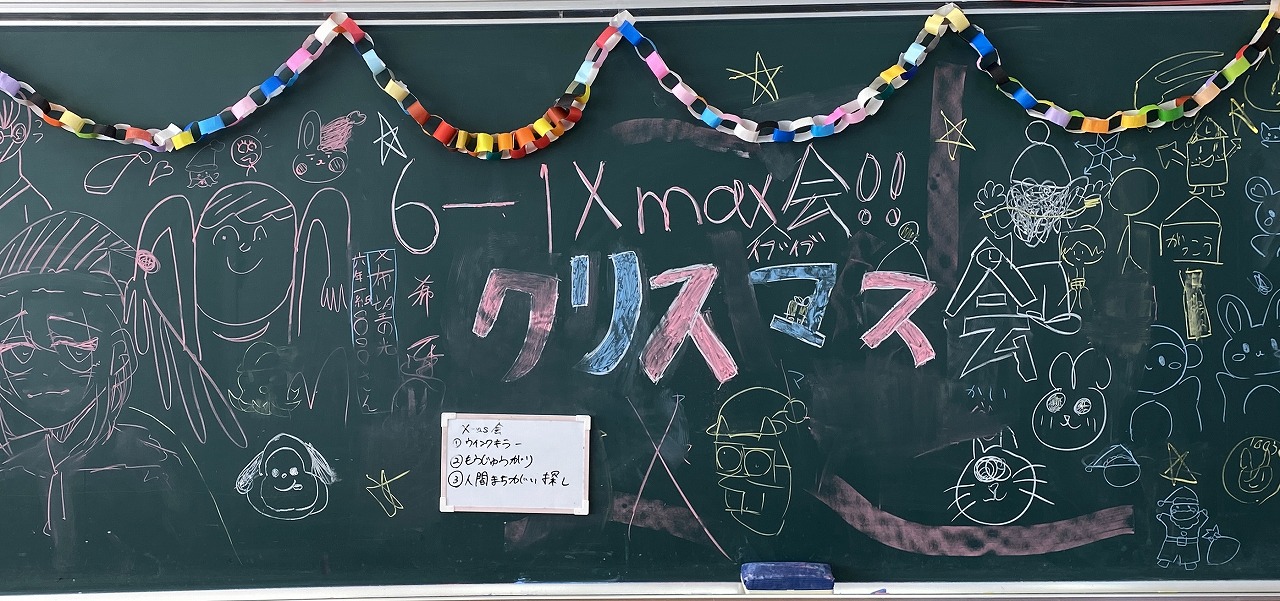 6-1 Xmax会!!
イブイブ
クリスマス会
がっこう
かいい
希
X-as会
①ウインクキラー
②もうじゅうがり
③人間まちがい探し